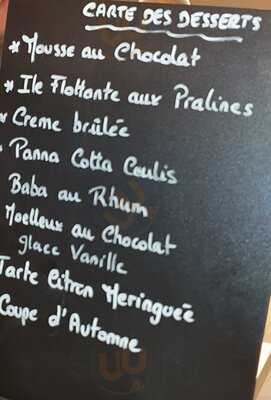 CARTE DES DESSERTS
* Mousse au Chocolat
* Ile Flottante aux Pralines
* Creme brûlée
Panna Cotta Coulis
Baba au Rhum
Moelleux au Chocolat
glace Vanille
Tarte Citron Meringuée
Coupe d'Automne